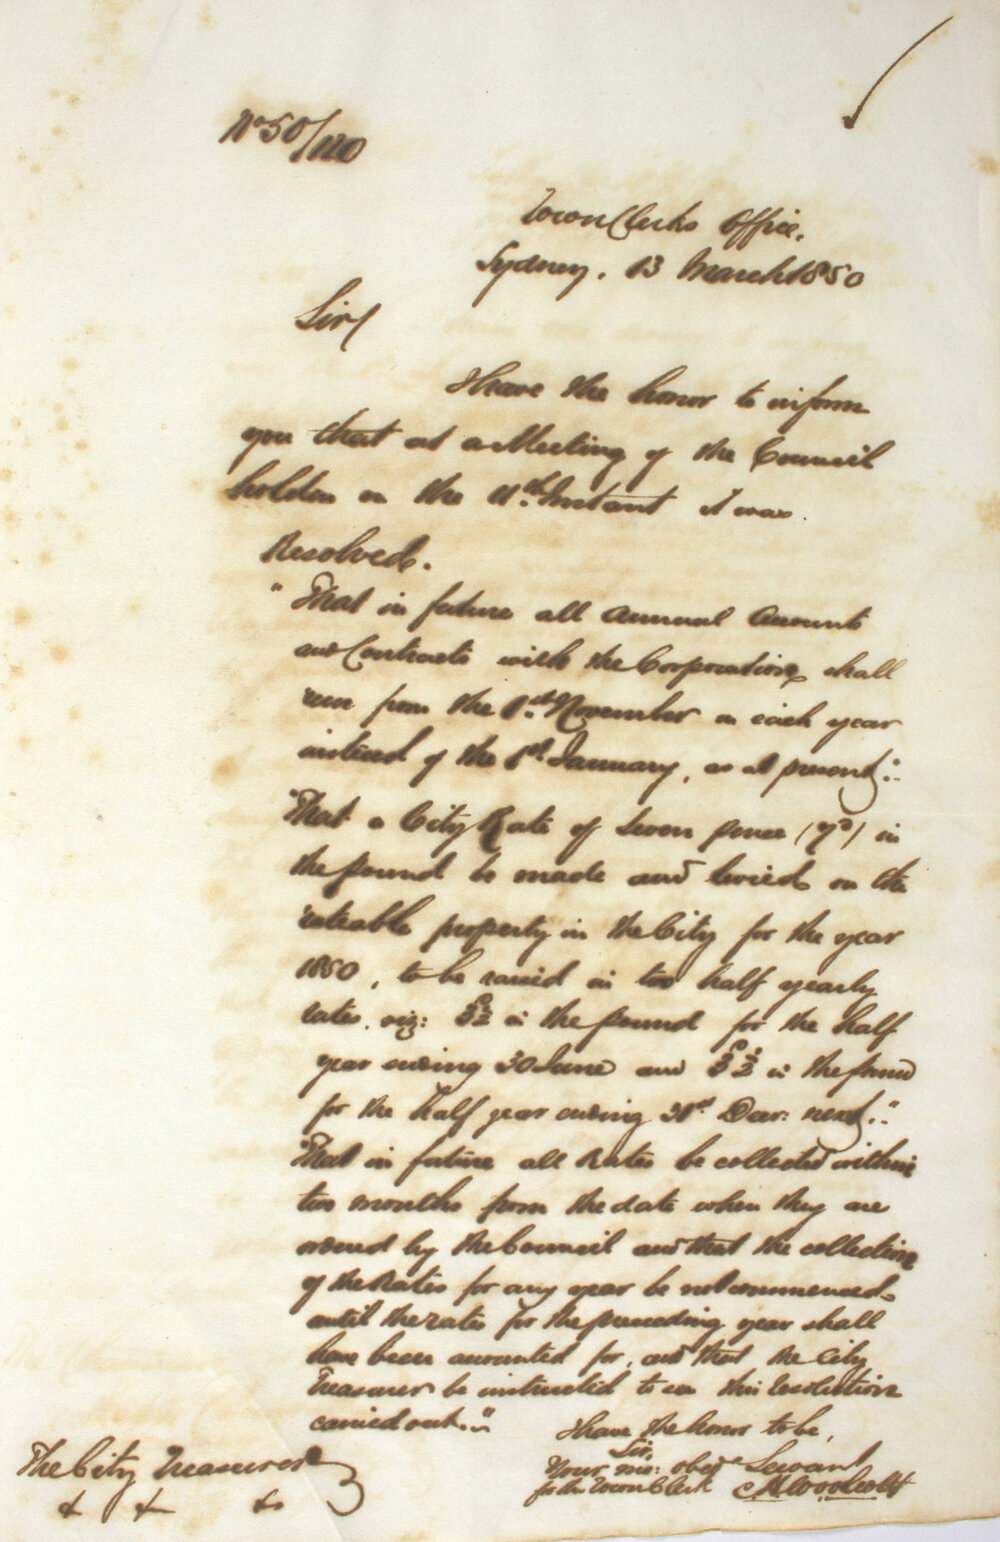 No 50/120
Town Clerks Office,
Sydney. 13 March 1850
Sir/
I have the honor to inform
you that at a Meeting of the Council
holden on the 11th. Instant it was.
Resolved.
"That in future all annual accounts
and Contracts with the Corporation, shall
run from the 1st. November in each year
instead of the 1st. January, as at present."
"That a City Rate of Seven pence (7d) in
the pound be made and levied on the
rateable property in the City for the year
1850, to be raised in two half yearly
rates, viz: 3½d in the pound for the half
year ending 30 June and 3½d in the pound
for the half year ending 31st Decr: next."
"That in future all Rates be collected within
two months from the date when they are
ordered by the Council and that the collection
of the Rates for any year be not commenced
until the rates for the preceding year shall
have been accounted for, and that the City
Treasurer be instructed to see this resolution
carried out."
I have the honor to be,
Sir,
Your mo: obed Servant
for the Town Clerk C H Woolcott
The City Treasurer
& & &c